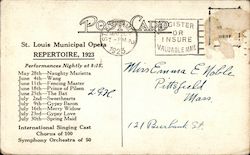 POST CARD
REGISTER
OR
INSURE
VALUABLE MAIL
1923
St. Louis Municipal Opera
REPERTOIRE, 1923
Performances Nightly at 8:15
May 28th—Naughty Marietta
June 4th—Wang
June 11th—Fencing Master
June 18th—Prince of Pilsen
June 25th—The Bat
July 2nd—Sweethearts
July 9th—Gypsy Baron
July 16th—Merry Widow
July 23rd—Gypsy Love
July 30th—Spring Maid
International Singing Cast
Chorus of 100
Symphony Orchestra of 50
Miss Emma E Noble
Pittsfield
Mass